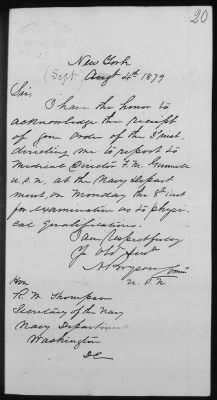 20
New York
(Sept Augt 4th 1879
Sir
I have the honor to
acknowledge the receipt
of your order of the 3d inst.
directing me to report to
Medical Director F. M. Gunnell
U.S.N., at the Navy Depart
ment, on Monday the 8th inst
for examination as to physi
cal qualifications.
I am Respectfully
Yr Obt Servt
U. S. N.
Hon
R. W. Thompson
Secretary of the Navy
Navy Department
Washington
DC